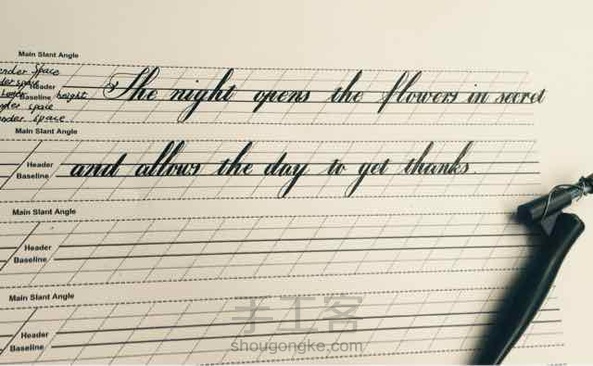 Main Slant Angle
Space
Header
Baseline height The night opens the flowers in secret
space
space
Main Slant Angle
and allows the day to get thanks.
Header
Baseline
Main Slant Angle
Header
Baseline
Main Slant Angle
Header
Baseline
手工客
shougongke.com